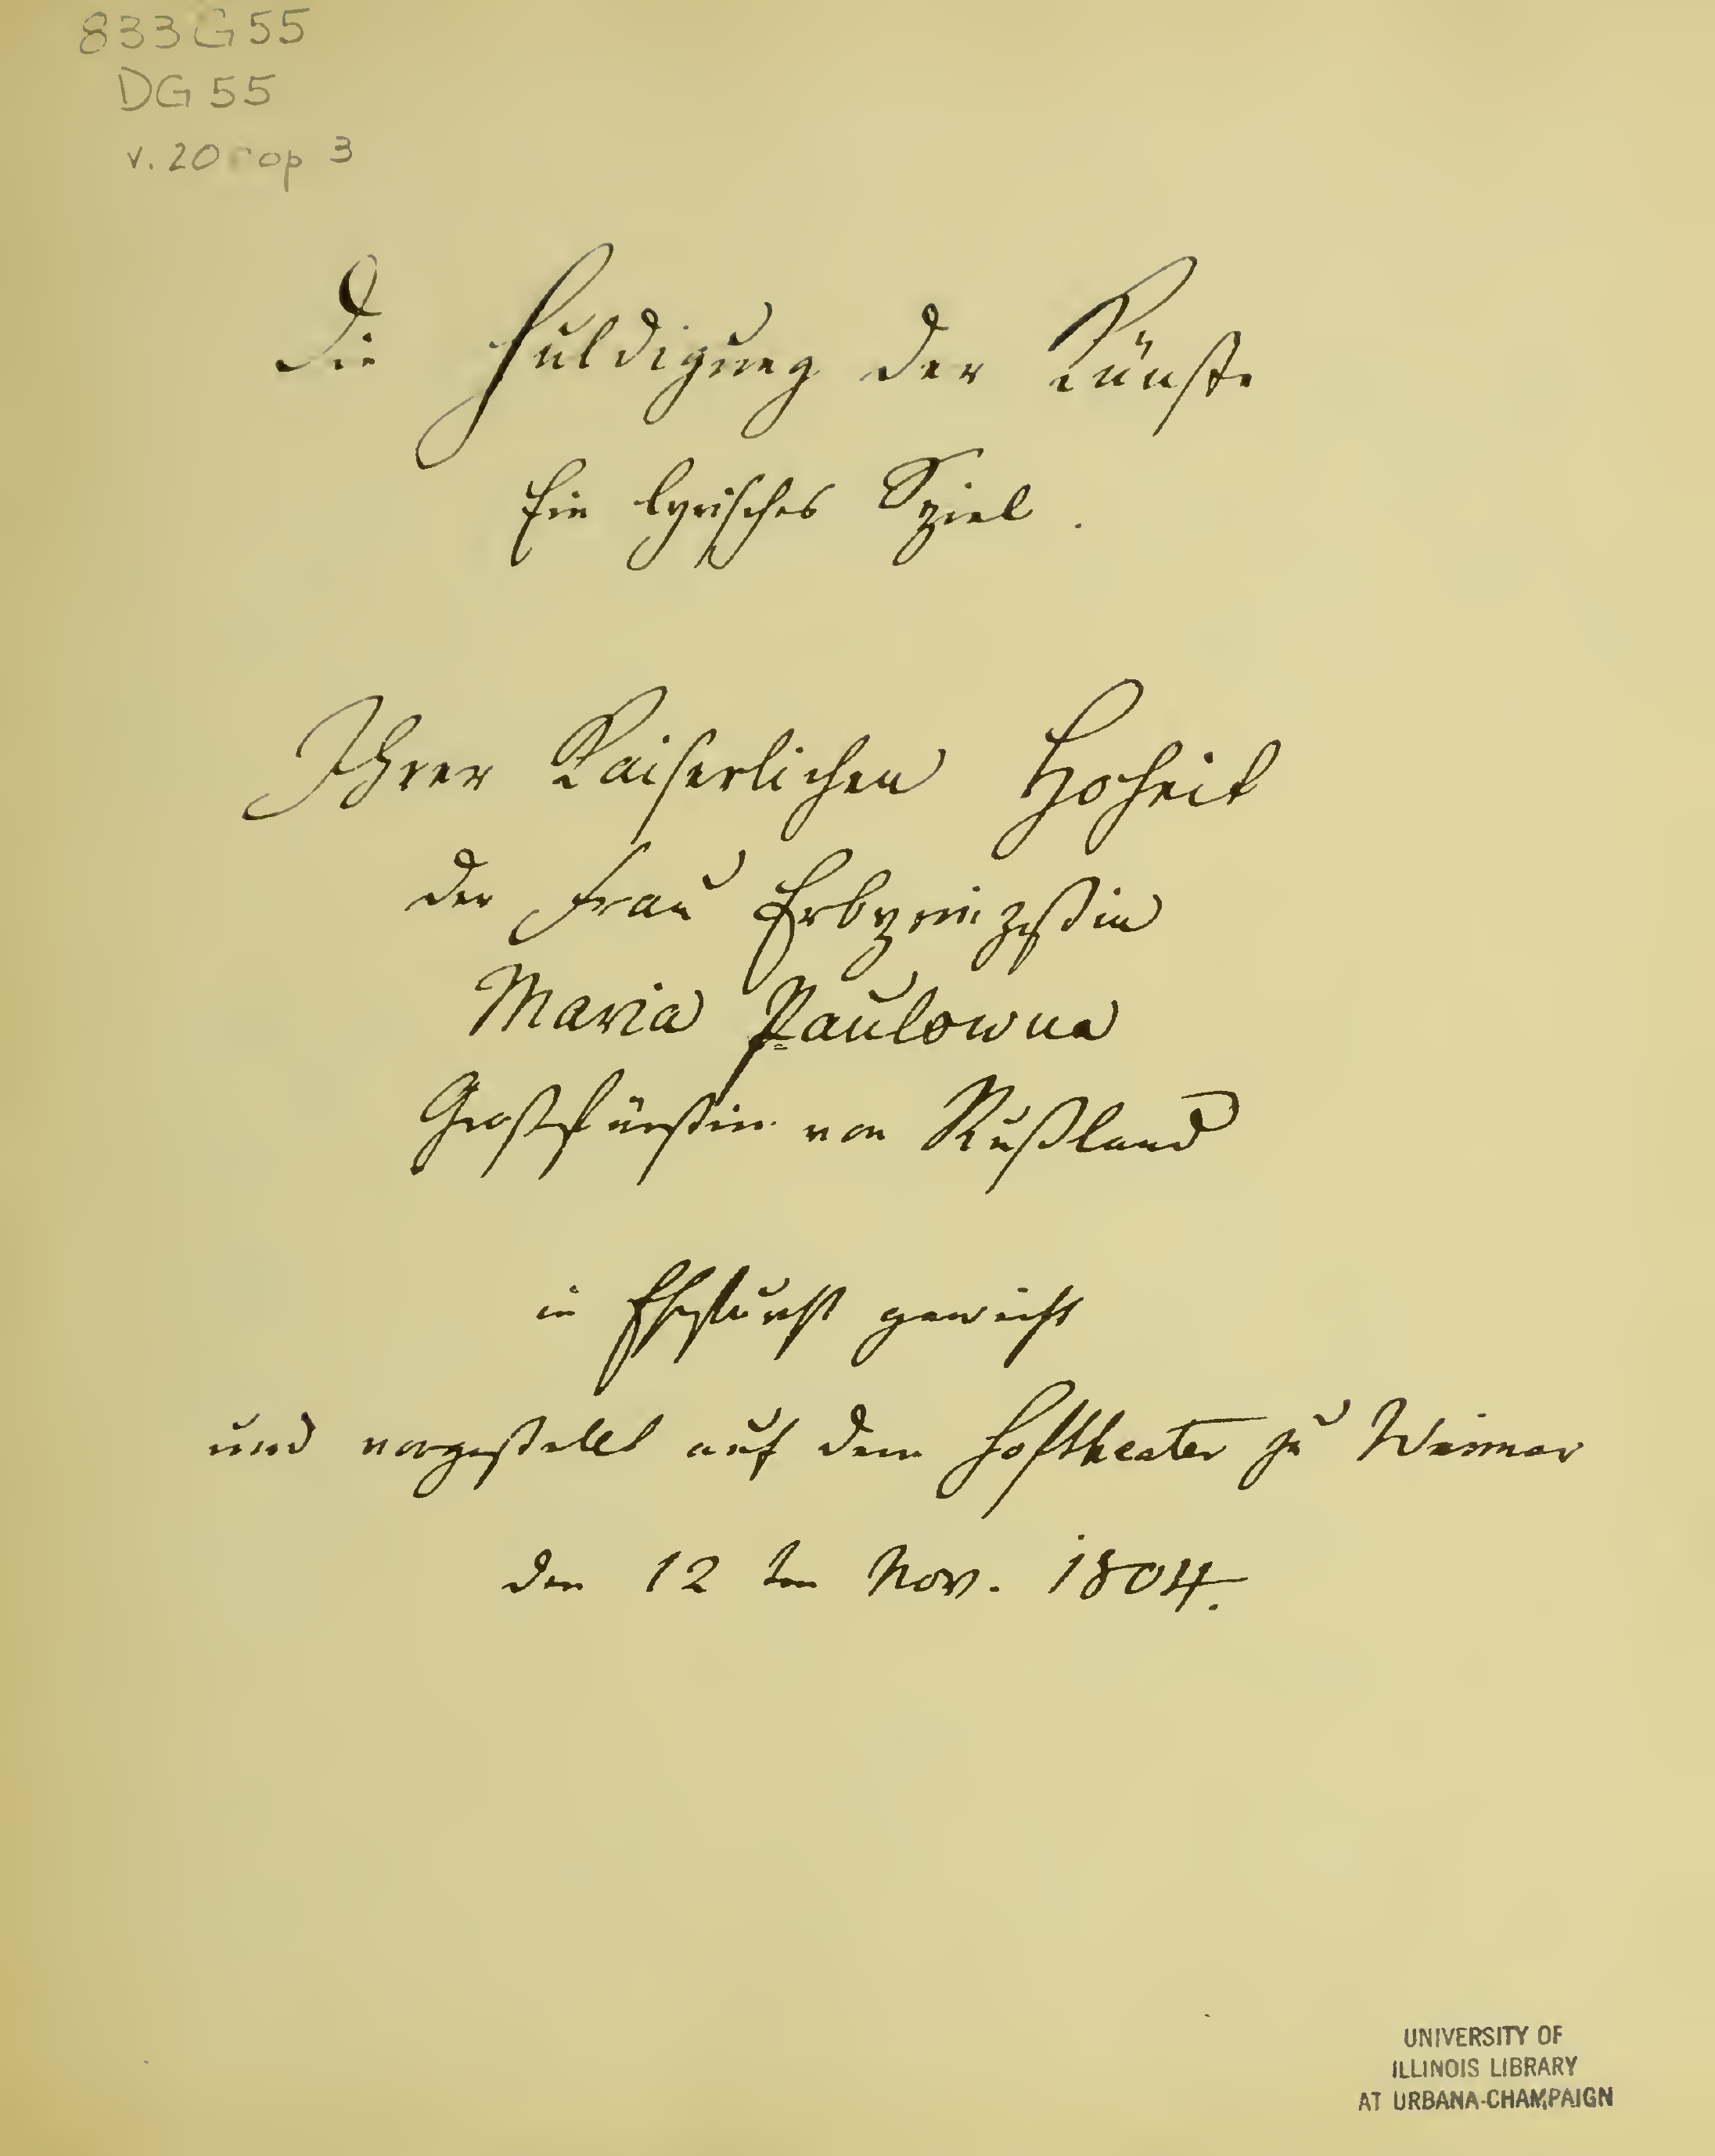 833G55
DG55
v. 20 cop 3
Die Huldigung der Künste
Ein lyrisches Spiel.
Ihrer Kaiserlichen Hoheit
der Frau Erbprinzeßin
Maria Paulowna
Großfürstin von Rußland
in Ehrfurcht geweiht
und vorgestellt auf dem Hoftheater zu Weimar
den 12 ten Nov. 1804.
UNIVERSITY OF
ILLINOIS LIBRARY
AT URBANA-CHAMPAIGN